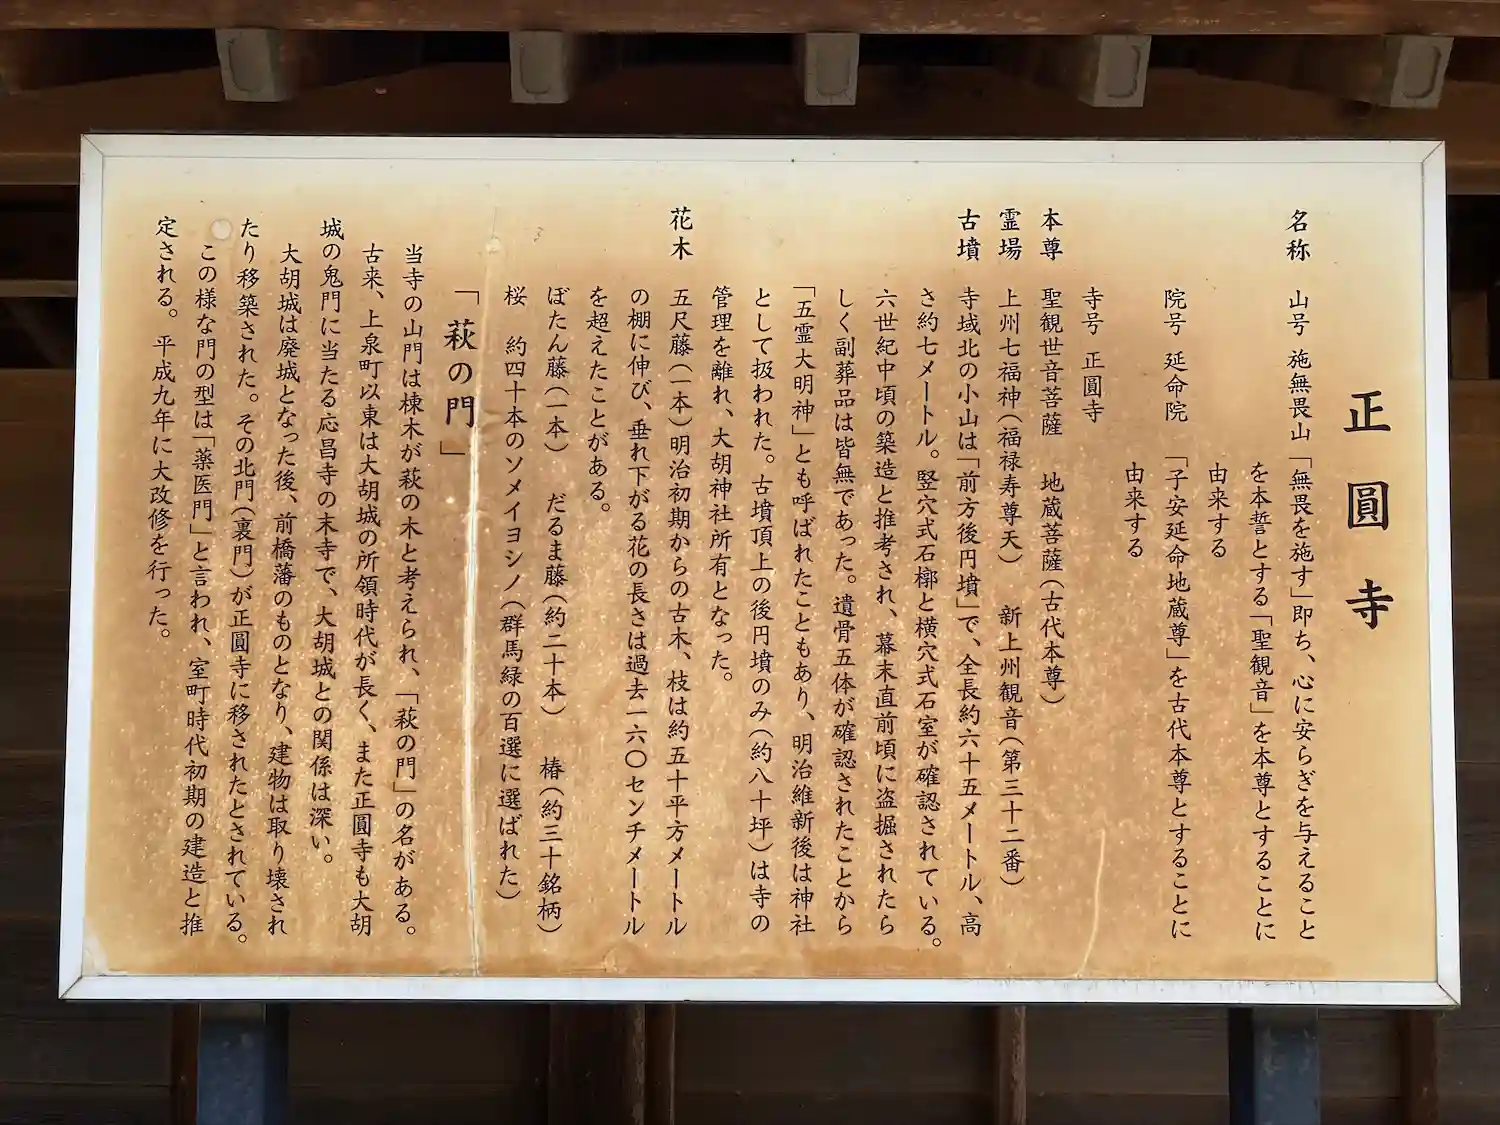 正圓寺
名称 山号 施無畏山 「無畏を施す」即ち、心に安らぎを与えること
を本誓とする「聖観音」を本尊とすることに
由来する
院号 延命院 「子安延命地蔵尊」を古代本尊とすることに
由来する
寺号 正圓寺
本尊 聖観世音菩薩 地蔵菩薩(古代本尊)
霊場 上州七福神(福禄寿尊天) 新上州観音(第三十二番)
古墳 寺域北の小山は「前方後円墳」で、全長約六十五メートル、高
さ約七メートル。竪穴式石槨と横穴式石室が確認されている。
六世紀中頃の築造と推考され、幕末直前頃に盗掘されたら
しく副葬品は皆無であった。遺骨五体が確認されたことから
「五霊大明神」とも呼ばれたこともあり、明治維新後は神社
として扱われた。古墳頂上の後円墳のみ(約八十坪)は寺の
管理を離れ、大胡神社所有となった。
花木 五尺藤(一本)明治初期からの古木、枝は約五十平方メートル
の棚に伸び、垂れ下がる花の長さは過去一六〇センチメートル
を超えたことがある。
ぼたん藤(一本) だるま藤(約二十本) 椿(約三十銘柄)
桜 約四十本のソメイヨシノ(群馬緑の百選に選ばれた)
「萩の門」
当寺の山門は棟木が萩の木と考えられ、「萩の門」の名がある。
古来、上泉町以東は大胡城の所領時代が長く、また正圓寺も大胡
城の鬼門に当たる応昌寺の末寺で、大胡城との関係は深い。
大胡城は廃城となった後、前橋藩のものとなり、建物は取り壊され
たり移築された。その北門(裏門)が正圓寺に移されたとされている。
この様な門の型は「薬医門」と言われ、室町時代初期の建造と推
定される。平成九年に大改修を行った。